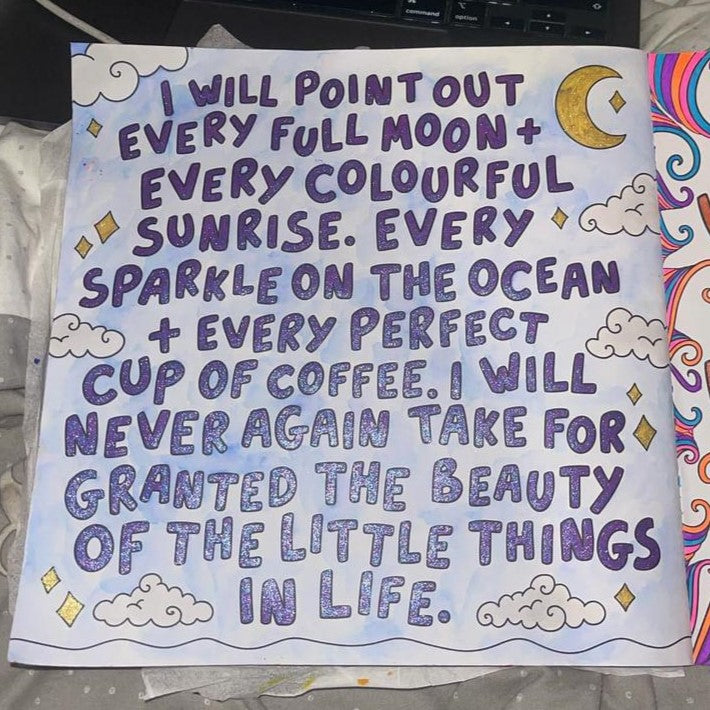 command
option
I WILL POINT OUT
EVERY FULL MOON +
EVERY COLOURFUL
SUNRISE. EVERY
SPARKLE ON THE OCEAN
+ EVERY PERFECT
CUP OF COFFEE. I WILL
NEVER AGAIN TAKE FOR
GRANTED THE BEAUTY
OF THE LITTLE THINGS
IN LIFE.